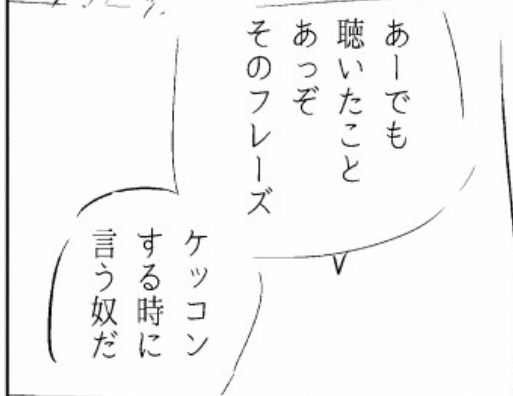 あーでも
聴いたこと
あっぞ
そのフレーズ
ケッコン
する時に
言う奴だ